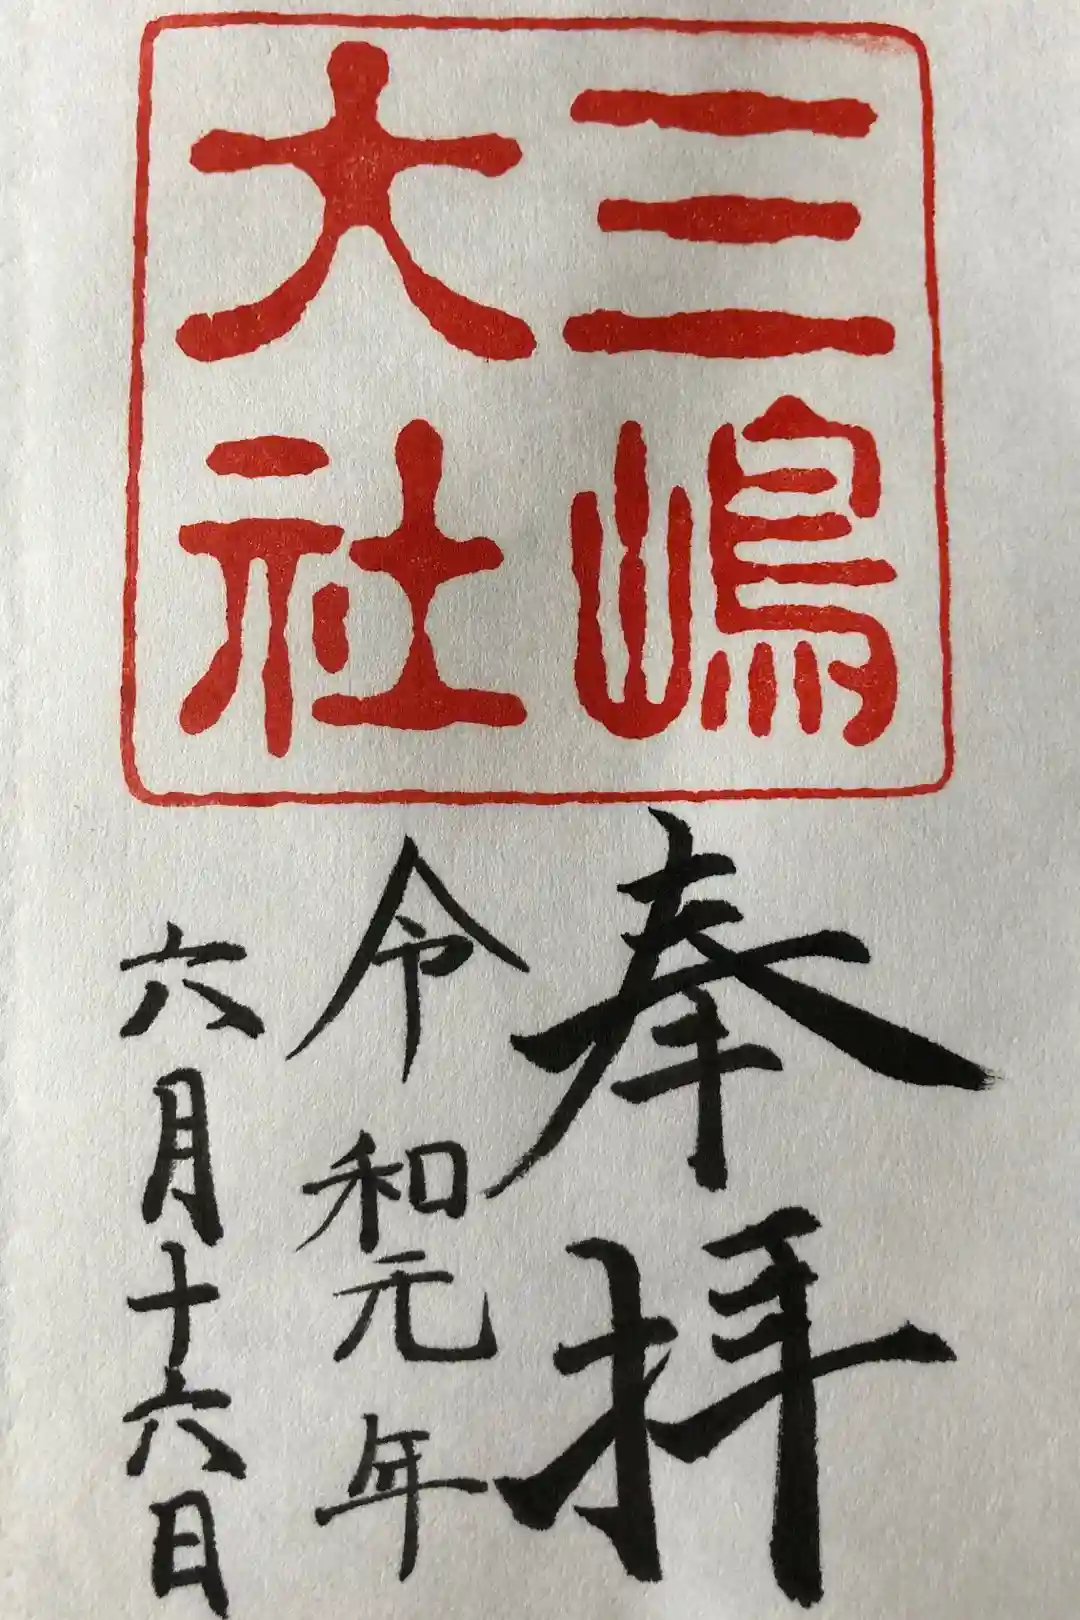 三嶋
大社
奉拝
令和元年
六月十六日